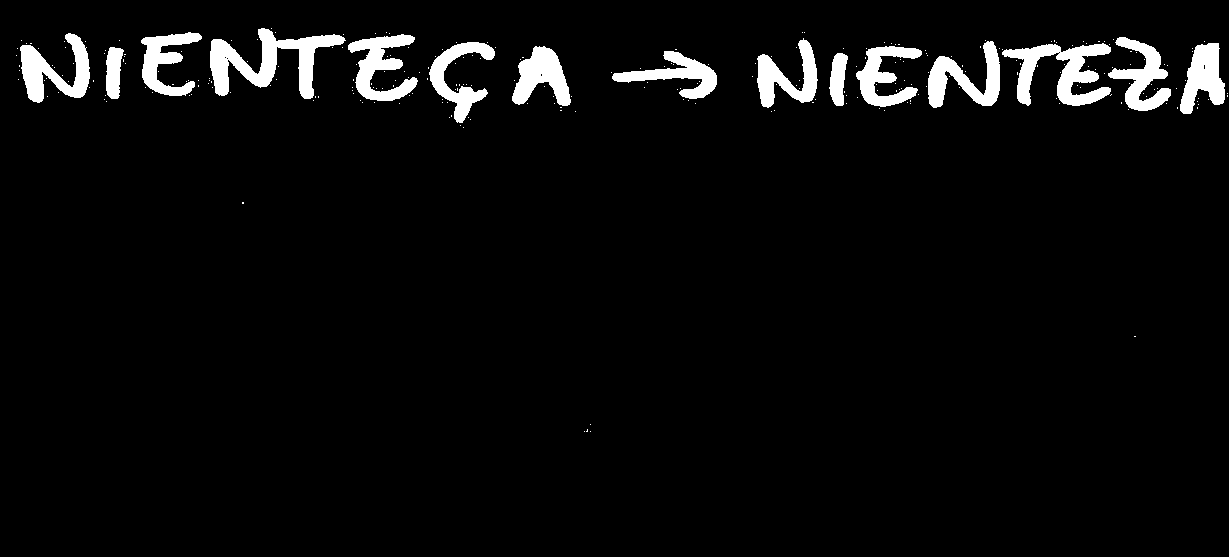 NIENTEÇA → NIENTEZA